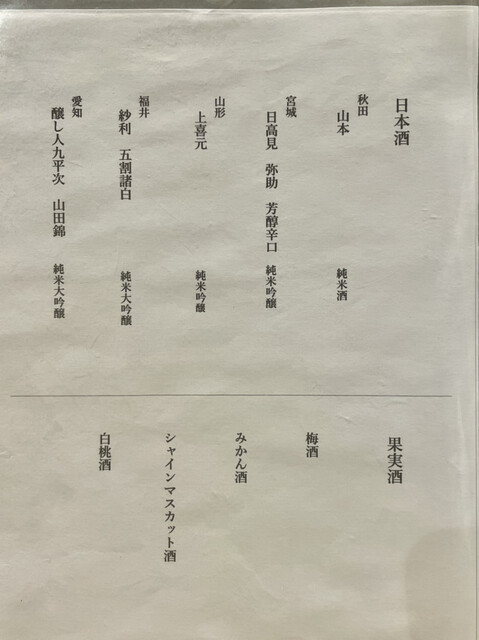 日本酒
秋田
山本　純米酒
宮城
日高見　弥助　芳醇辛口　純米吟醸
山形
上喜元　純米吟醸
福井
紗利　五割諸白　純米大吟醸
愛知
醸し人九平次　山田錦　純米大吟醸
果実酒
梅酒
みかん酒
シャインマスカット酒
白桃酒